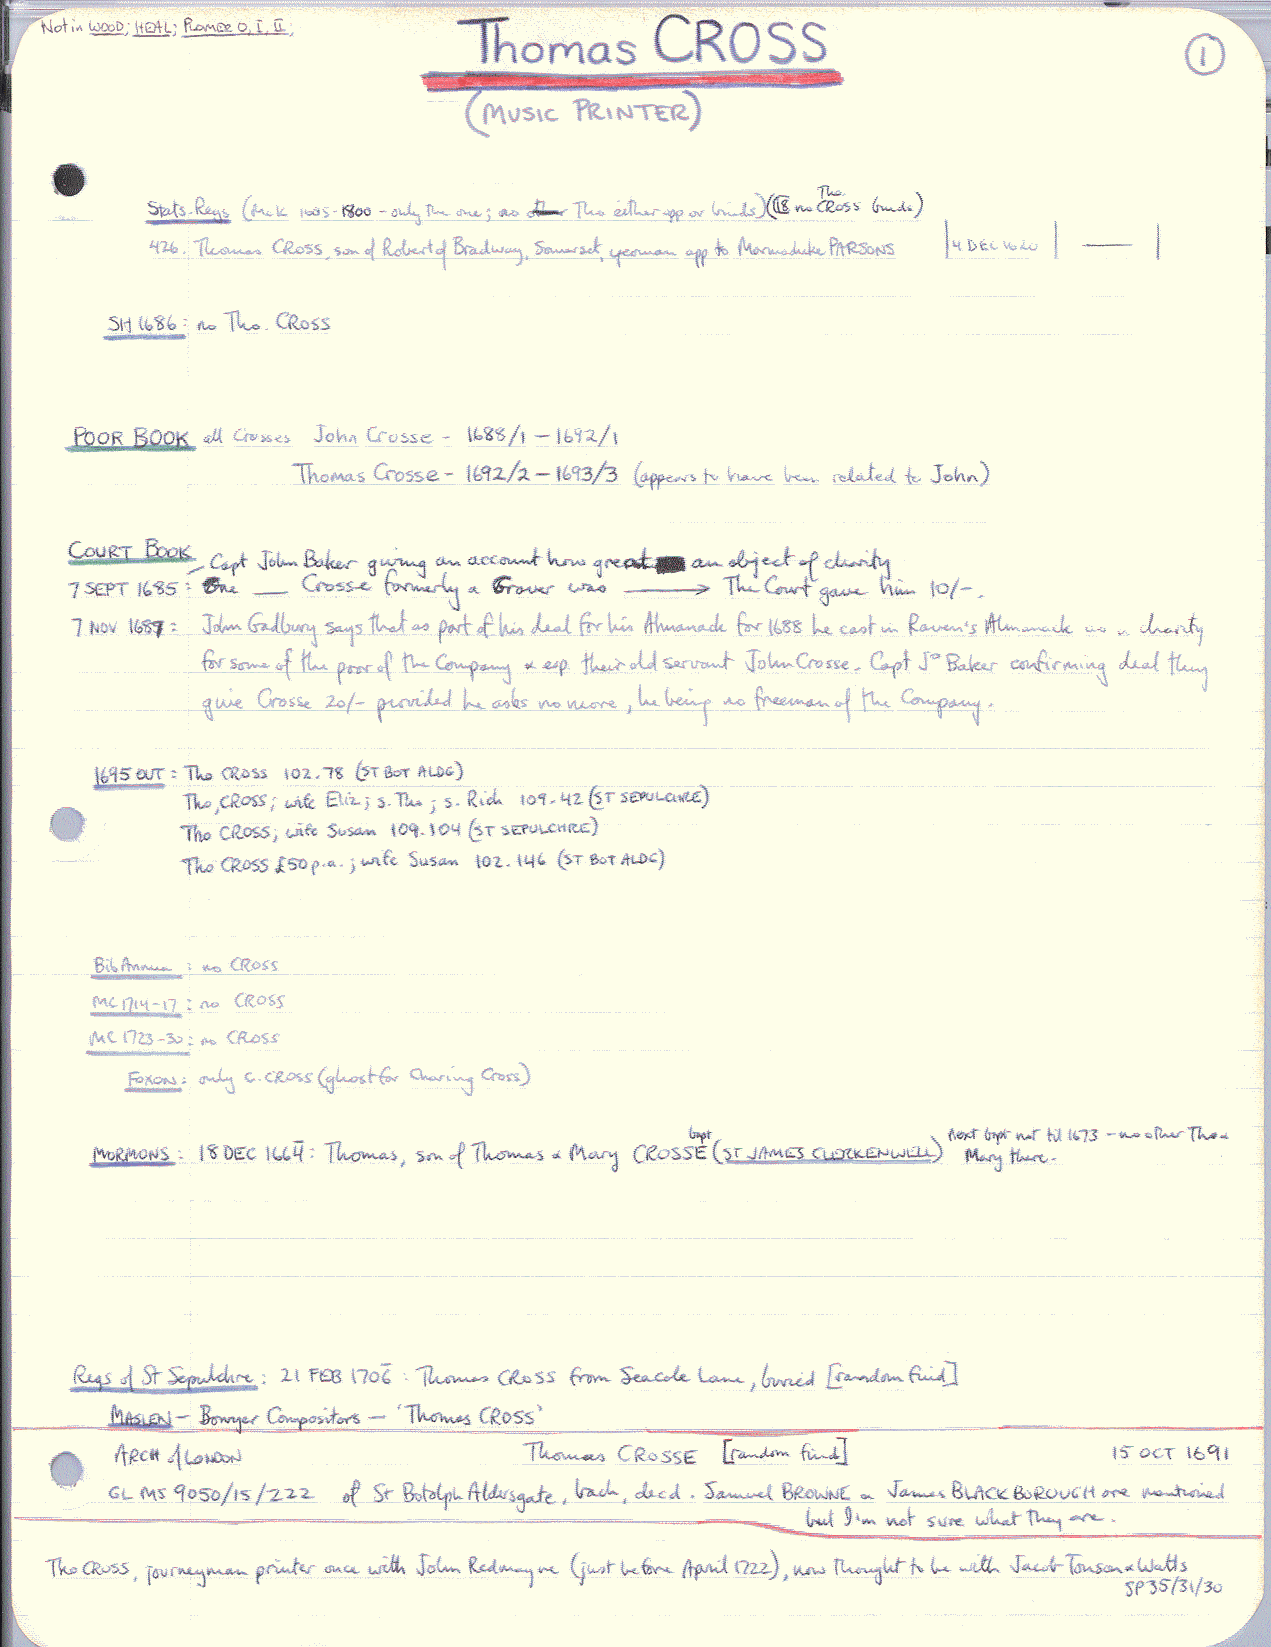 Not in WOOD; HEAL; PLOMER O, I, II;
Thomas CROSS
1
(MUSIC PRINTER)
Stats. Regs (McK 1605-1800 - only the one; no other Tho either app or binds) (no Tho. CROSS binds)
426. Thomas CROSS, son of Robert of Bradway, Somerset, yeoman app to Marmaduke PARSONS | 4 DEC 1620 | — |
SH 1686: no Tho. CROSS
POOR BOOK all Crosses John Crosse - 1688/1 - 1692/1
Thomas Crosse - 1692/2 - 1693/3 (appears to have been related to John)
COURT BOOK Capt John Baker giving an account how great an object of charity
7 SEPT 1685: One — Crosse formerly a Grover was → The Court gave him 10/-.
7 NOV 1687: John Gadbury says that as part of his deal for his Almanack for 1688 he cast in Raven's Almanack as a charity
for some of the poor of the Company & esp. their old servant John Crosse. Capt Jno Baker confirming deal they
give Crosse 20/- provided he asks no more, he being no freeman of the Company.
1695 OUT: Tho CROSS 102.78 (ST BOT ALDG)
Tho, CROSS; wife Eliz; s. Tho; s. Rich 109.42 (ST SEPULCHRE)
Tho CROSS; wife Susan 109.104 (ST SEPULCHRE)
Tho CROSS £50 p.a.; wife Susan 102.146 (ST BOT ALDG)
Bib Annua: no CROSS
MC 1714-17: no CROSS
MC 1723-30: no CROSS
FOXON: only C. CROSS (ghost for Charing Cross)
MORMONS: 18 DEC 1664: Thomas, son of Thomas & Mary CROSSE bapt (ST JAMES CLERKENWELL) next bapt not til 1673 - no other Tho &
Mary there.
Regs of St Sepulchre: 21 FEB 1706: Thomas CROSS from Seacole Lane, buried [random find]
MASLEN - Bowyer Compositors - 'Thomas CROSS'
ARCH of LONDON Thomas CROSSE [random find] 15 OCT 1691
GL MS 9050/15/222 of St Botolph Aldersgate, bach, decd. Samuel BROWNE & James BLACKBOROUGH are mentioned
but I'm not sure what they are.
Tho CROSS, journeyman printer once with John Redmayne (just before April 1722), now thought to be with Jacob Tonson & Watts
SP 35/31/30